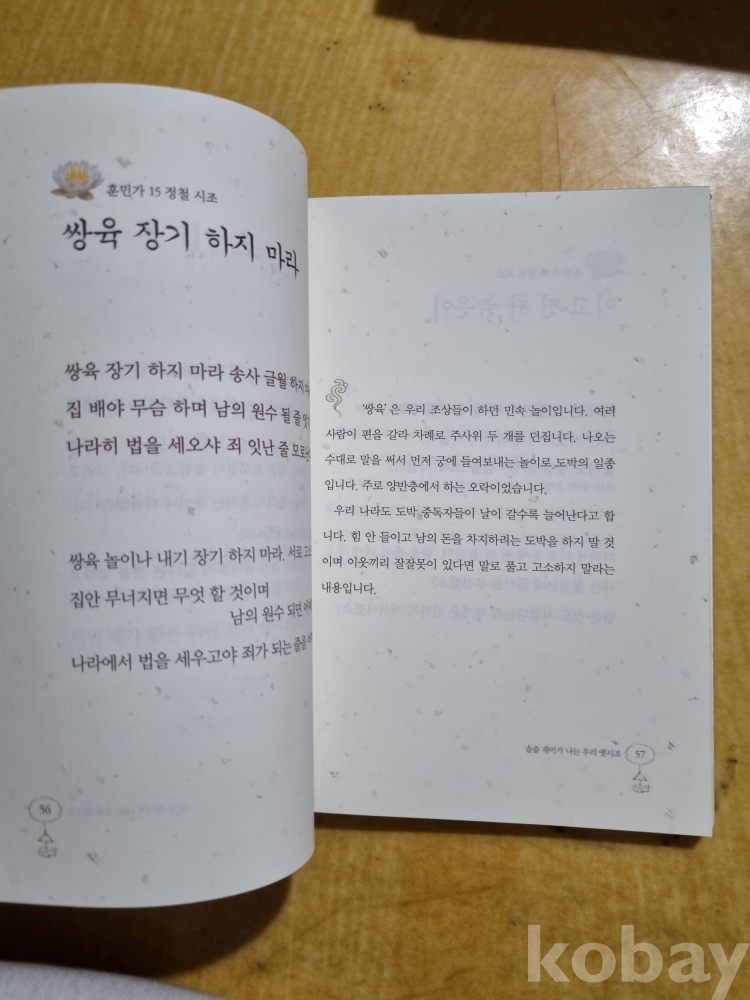 훈민가 15 정철 시조
쌍육 장기 하지 마라
쌍육 장기 하지 마라 송사 글월 하지
집 배야 무슴 하며 남의 원수 될 줄
나라히 법을 세오샤 죄 잇난 줄
쌍육 놀이나 내기 장기 하지 마라.
집안 무너지면 무엇 할 것이며
남의 원수 되면
나라에서 법을 세우고야 죄가 되는 줄을
56
'쌍육'은 우리 조상들이 하던 민속 놀이입니다. 여러
사람이 편을 갈라 차례로 주사위 두 개를 던집니다. 나오는
수대로 말을 써서 먼저 궁에 들여보내는 놀이로 도박의 일종
입니다. 주로 양반층에서 하는 오락이었습니다.
우리 나라도 도박 중독자들이 날이 갈수록 늘어난다고 합
니다. 힘 안 들이고 남의 돈을 차지하려는 도박을 하지 말 것
이며 이웃끼리 잘잘못이 있다면 말로 풀고 고소하지 말라는
내용입니다.
술술 재미가 나는 우리 옛시조
57
kobay